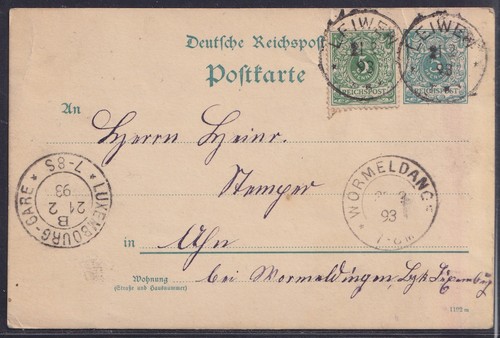 Deutsche Reichspost
Postkarte
LEIWEN
21 2
93
5
REICHSPOST
LEIWEN
93
REICHSPOST
An
Herrn Heinr.
Stemper
LUXEMBOURG-GARE
7-8S
B
21 2
93
WORMELDANGE
93
in Ahn
Wohnung
(Straße und Hausnummer)
bei Wormeldingen,